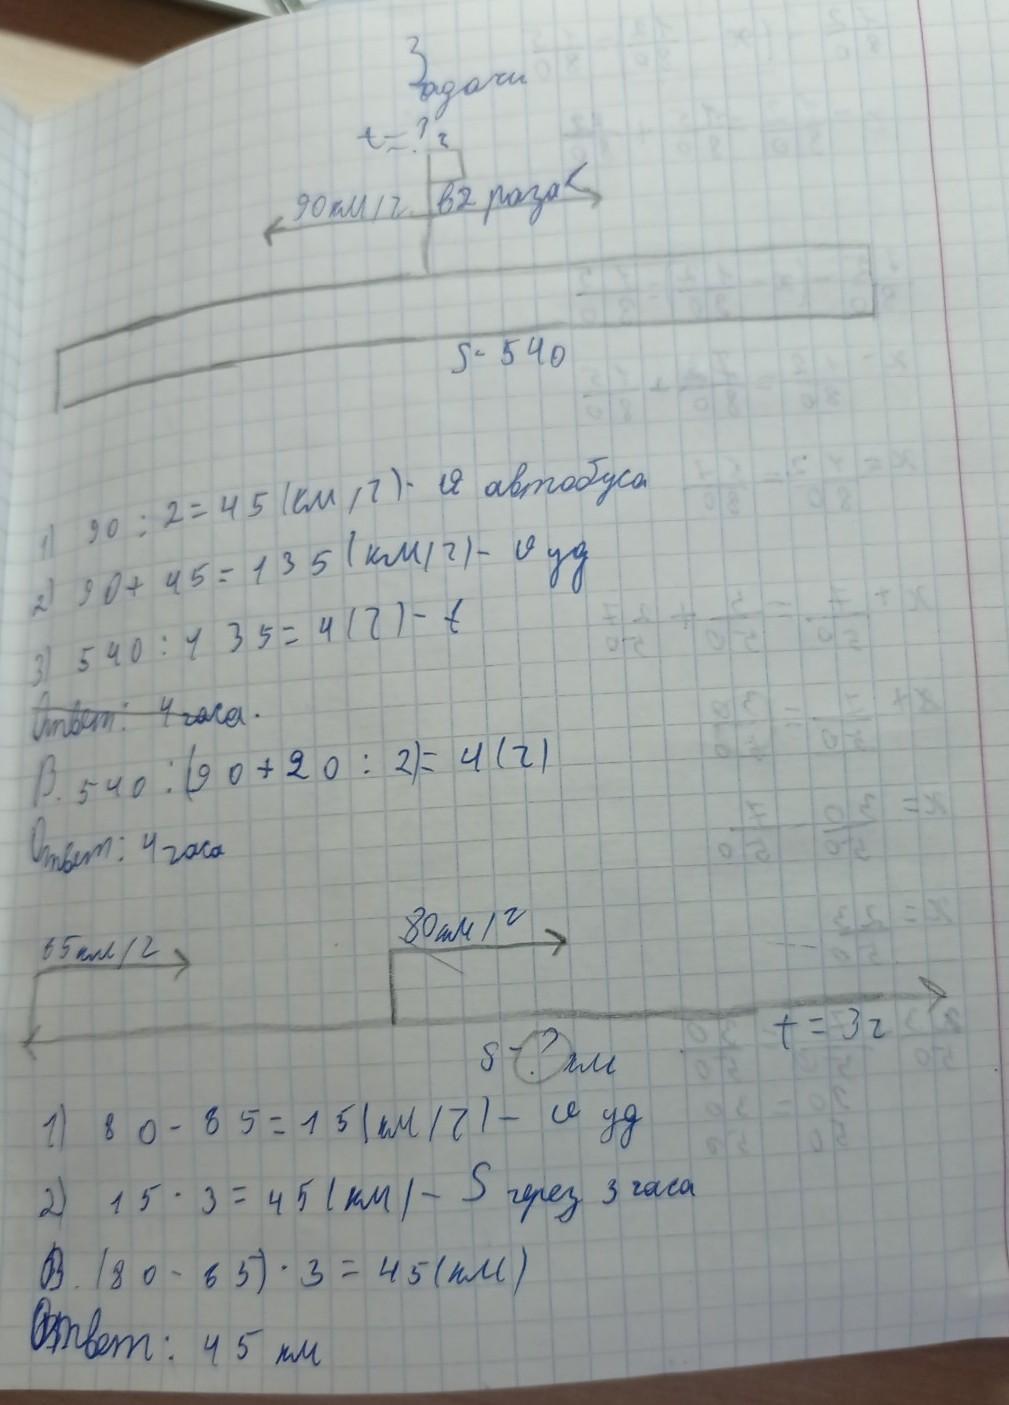 Задачи
t=? ч
90км/ч в2 раза<
S- 540
1) 90 : 2 = 45 (км/ч)- υ автобуса
2) 90+ 45 = 135 (км/ч)- υ уд
3) 540 : 135 = 4 (ч) - t
Ответ: 4 часа.
В. 540 : (90 + 90 : 2) = 4 (ч)
Ответ: 4 часа
65км/ч 80км/ч
t = 3ч
S - ? км
1) 80 - 65 = 15 (км/ч) - υ уд
2) 15 · 3 = 45 (км) - S через 3 часа
В. (80 - 65) · 3 = 45 (км)
Ответ: 45 км